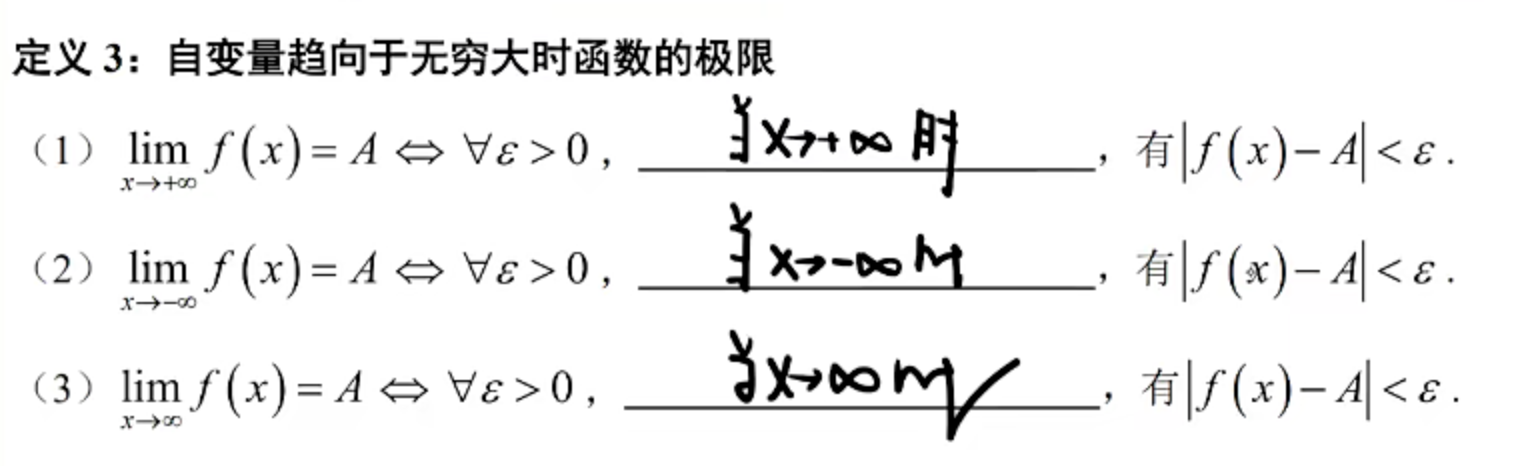 定义 3：自变量趋向于无穷大时函数的极限
（1） lim_{x→+∞} f(x) = A ⇔ ∀ε > 0， 当x→+∞时 ，有|f(x) − A| < ε.
（2） lim_{x→−∞} f(x) = A ⇔ ∀ε > 0， 当x→−∞ ，有|f(x) − A| < ε.
（3） lim_{x→∞} f(x) = A ⇔ ∀ε > 0， 当x→∞ ，有|f(x) − A| < ε.